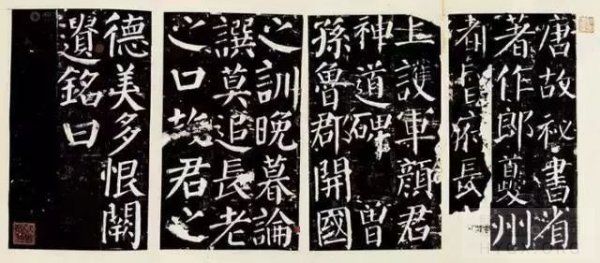 唐故祕書省
著作郎夔州
府長
上護軍顏君
神道碑 曾
孫魯郡開國
之訓晚暮論
譔莫追長老
之口故君之
德美多恨闕
遺銘曰